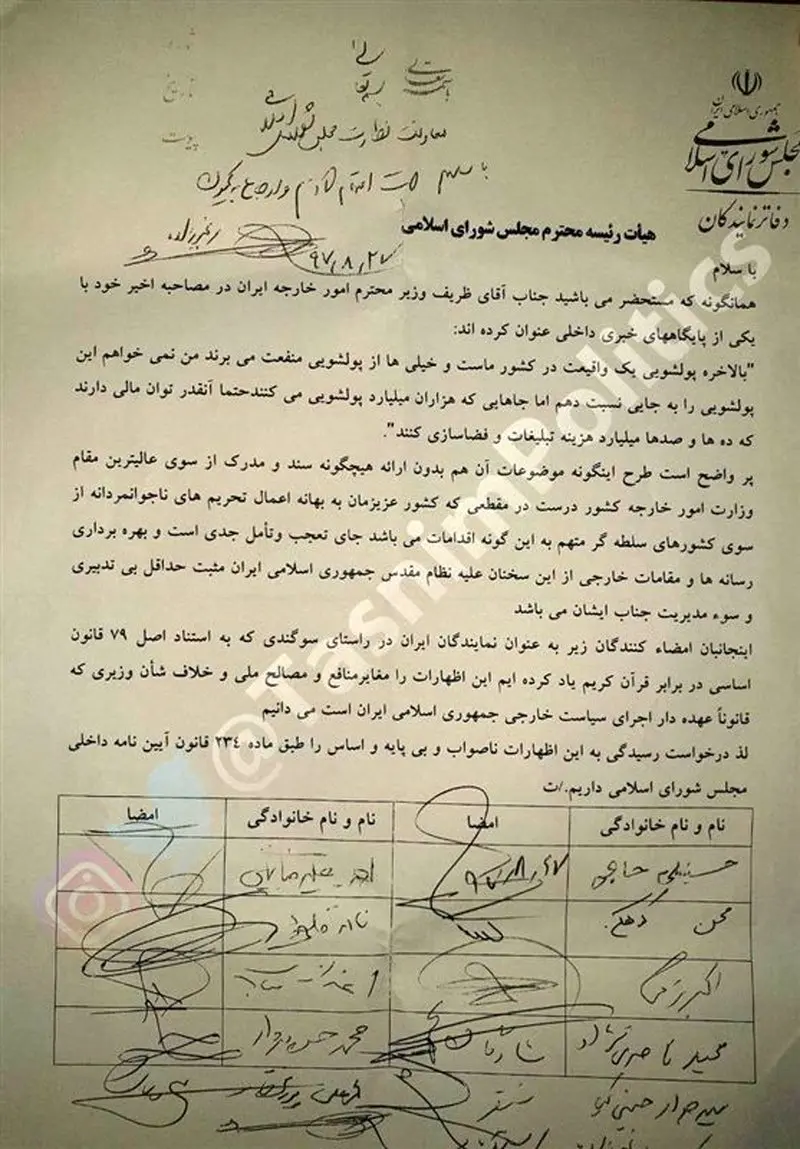 شماره
تاریخ
پیوست
باسمه تعالی
جمهوری اسلامی ایران
مجلس شورای اسلامی
دفاتر نمایندگان
معاونت نظارت مجلس شورای اسلامی
با سلام جهت اقدام لازم و ارجاع به کمیسیون
۹۷/۸/۲۷
هیأت رئیسه محترم مجلس شورای اسلامی
با سلام
همانگونه که مستحضر می باشید جناب آقای ظریف وزیر محترم امور خارجه ایران در مصاحبه اخیر خود با
یکی از پایگاههای خبری داخلی عنوان کرده اند:
"بالاخره پولشویی یک واقیعت در کشور ماست و خیلی ها از پولشویی منفعت می برند من نمی خواهم این
پولشویی را به جایی نسبت دهم اما جاهایی که هزاران میلیارد پولشویی می کنندحتما آنقدر توان مالی دارند
که ده ها و صدها میلیارد هزینه تبلیغات و فضاسازی کنند".
پر واضح است طرح اینگونه موضوعات آن هم بدون ارائه هیچگونه سند و مدرک از سوی عالیترین مقام
وزارت امور خارجه کشور درست در مقطعی که کشور عزیزمان به بهانه اعمال تحریم های ناجوانمردانه از
سوی کشورهای سلطه گر متهم به این گونه اقدامات می باشد جای تعجب وتأمل جدی است و بهره برداری
رسانه ها و مقامات خارجی از این سخنان علیه نظام مقدس جمهوری اسلامی ایران مثبت حداقل بی تدبیری
و سوء مدیریت جناب ایشان می باشد
اینجانبان امضاء کنندگان زیر به عنوان نمایندگان ایران در راستای سوگندی که به استناد اصل ۷۹ قانون
اساسی در برابر قرآن کریم یاد کرده ایم این اظهارات را مغایرمنافع و مصالح ملی و خلاف شأن وزیری که
قانوناً عهده دار اجرای سیاست خارجی جمهوری اسلامی ایران است می دانیم
لذ درخواست رسیدگی به این اظهارات ناصواب و بی پایه و اساس را طبق ماده ۲۳٤ قانون آیین نامه داخلی
مجلس شورای اسلامی داریم./ت
نام و نام خانوادگی امضا نام و نام خانوادگی امضا
حسینعلی حاجی ۹۷/۸/۲۷
محسن کوهکن
مجید ناصری نژاد
سید جواد حسینی کیا
@TasnimPolitics